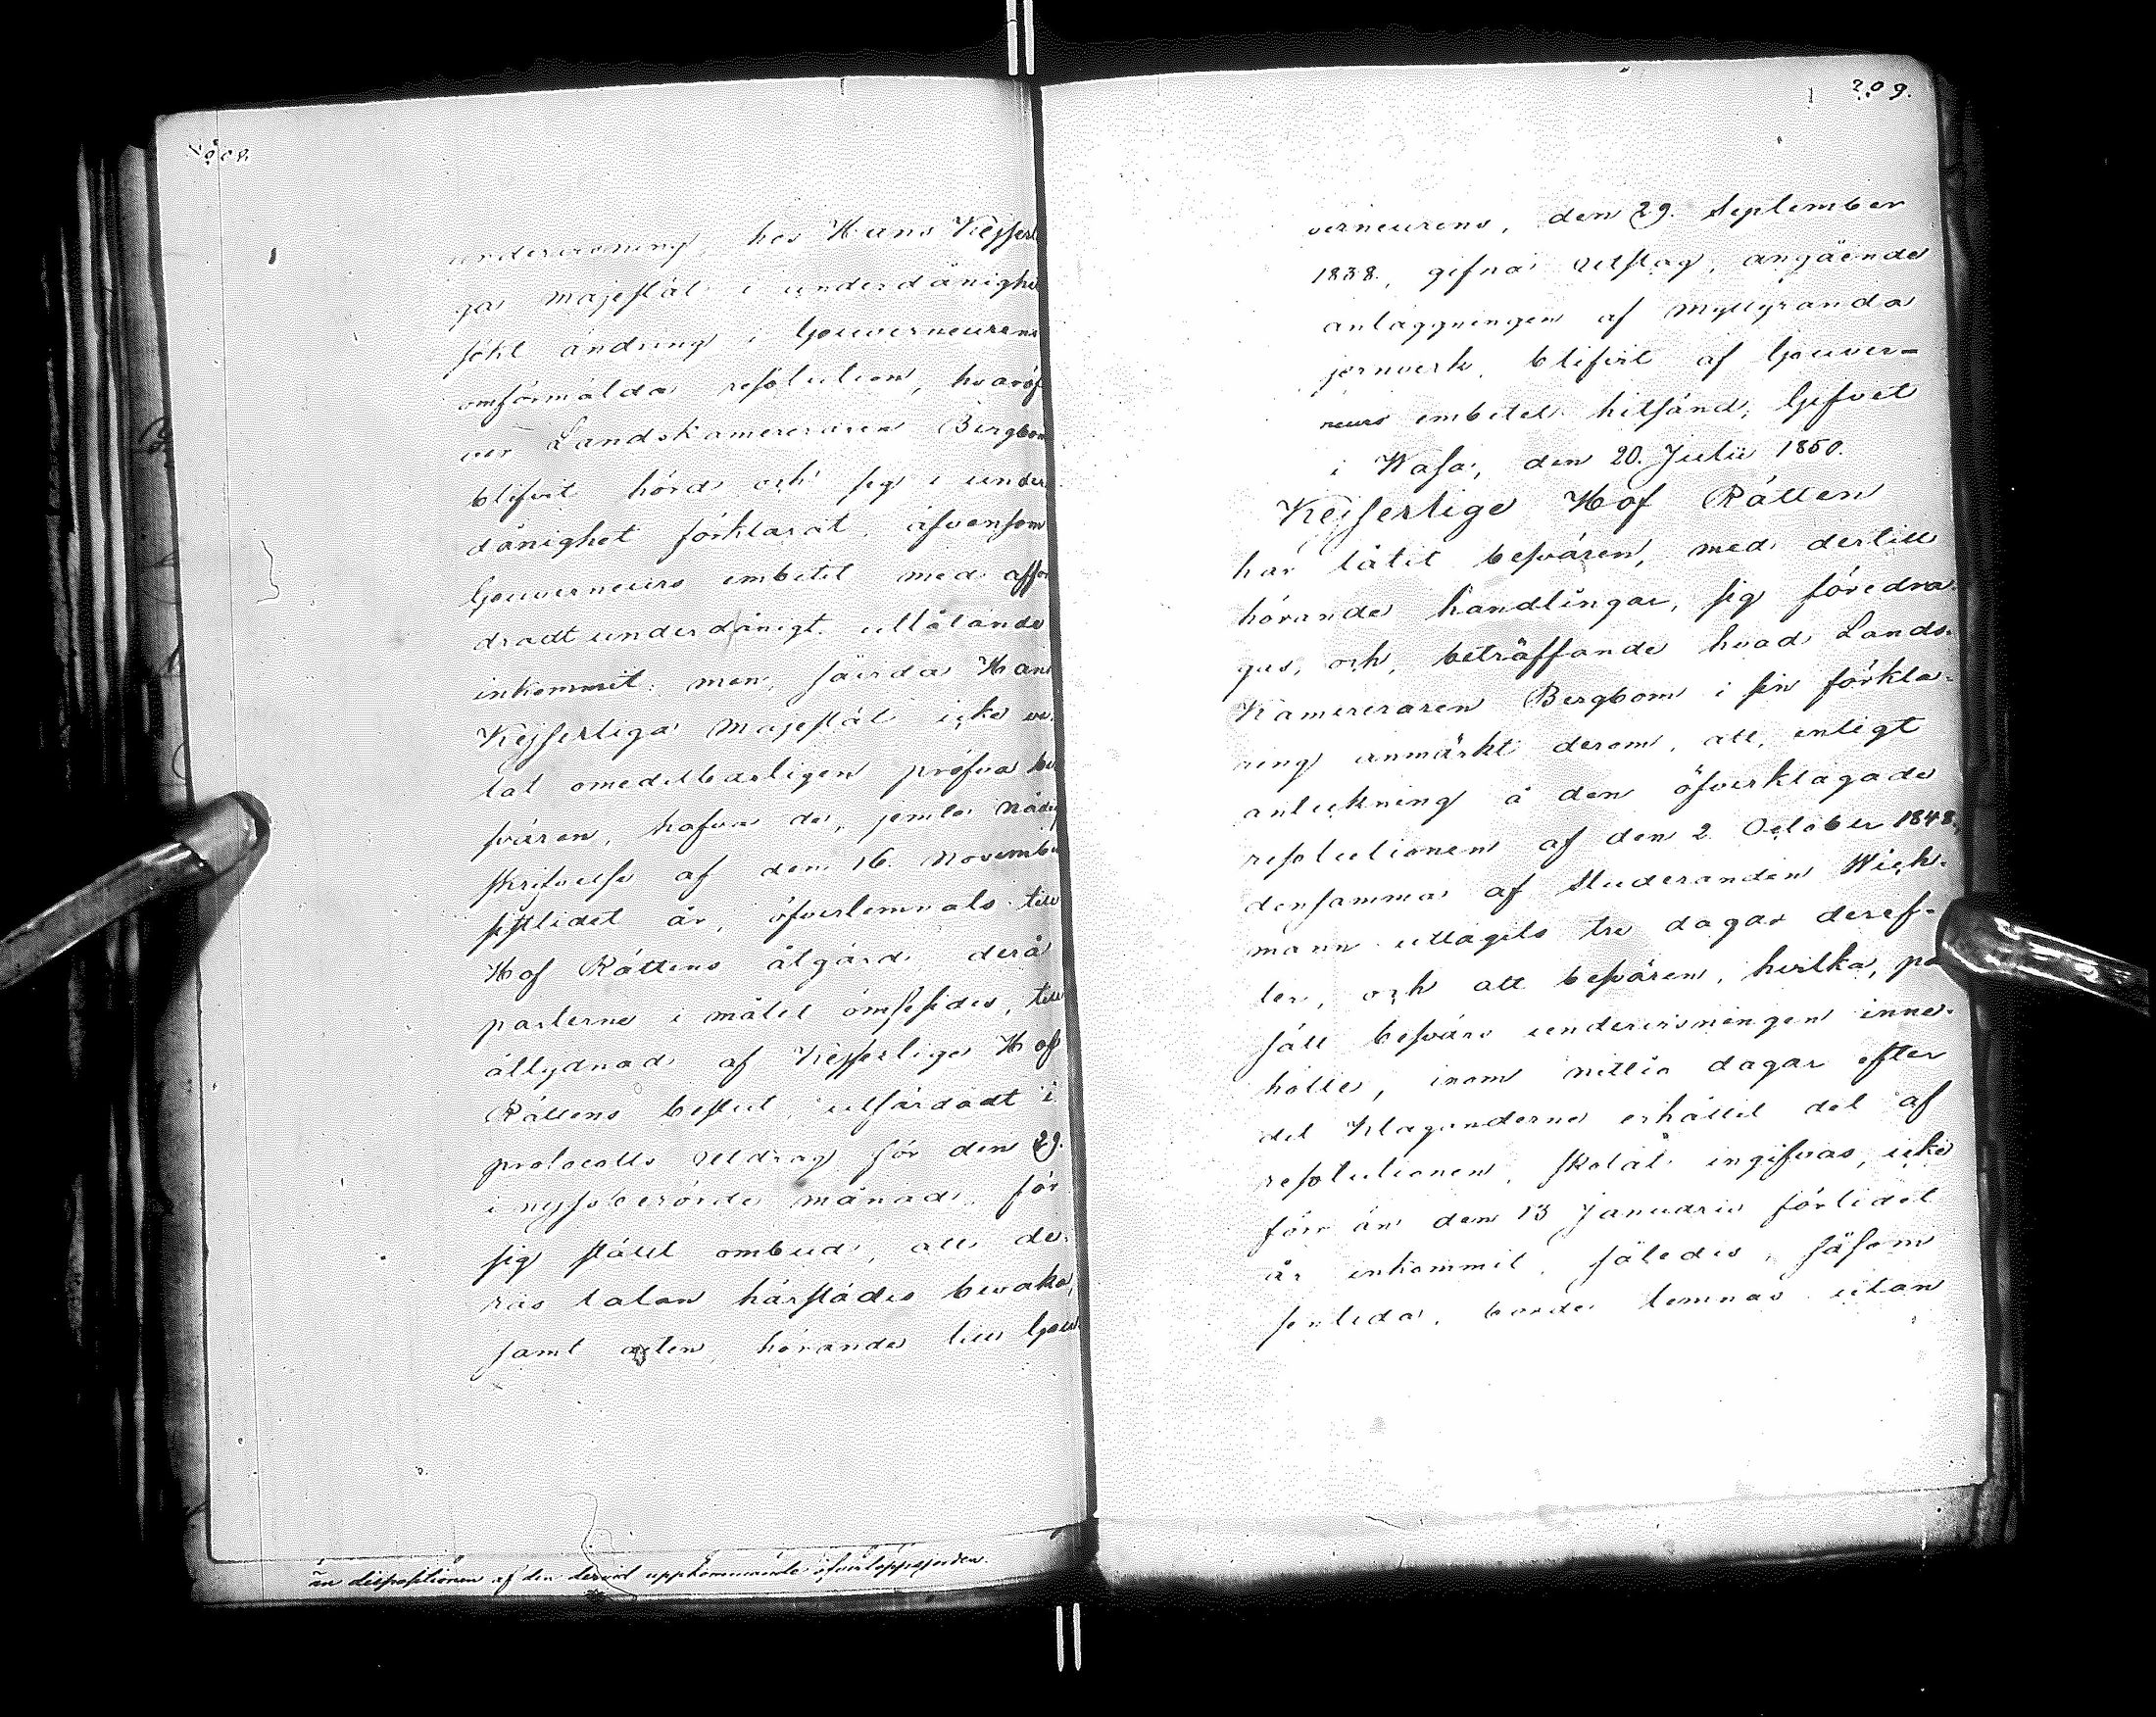 undervisning, hos Hans Kejserli
ga Majestät i underdånighet
sökt ändring i Gouverneurens
omförmälda resolution, hvaröf
ver Landskamereraren Bergbom
blifvit hörd och sig i under
dånighet förklarat, äfvensom
Gouverneurs embetet med affor
dradt underdånigt utlåtande
inkommit; men, såvida Hans
Kejserliga Majestät icke ve-
lat omedelbarligen pröfva be
svären, hafva de, jemte Nådig
skrifvelse af den 16. November
sistlidet år, öfverlemnats till
Hof Rättens åtgärd, derå
parterne i målet ömsesides, till
åtlydnad af Kejserliga Hof
Rättens beslut, utfärdadt i
protocolls utdrag för den 29.
i nyssberörde månad, för
sig ställt ombud, att de-
ras talan härstädes bevaka,
samt acten, hörande till Gou
än dispositionen af den dervid uppkommande öfverloppsjorden.
209.
verneurens, den 29. September
1838, gifna Utslag, angående
anläggningen af Myllyranda
jernverk, blifvit af Gouver-
neurs embetet hitsänd; Gifvet
i Wasa, den 20. Julii 1850.
Kejserlige Hof Rätten
har låtit besvären, med dertill
hörande handlingar, sigföredra-
gas, och, beträffande hvad Lands-
Kamereraren Bergbom i sin förkla-
ring anmärkt derom, att, enligt
anteckning å den öfverklagade
resolutionen af den 2. October 1848,
densamma af Studeranden Wick-
mann uttagits tre dagar deref-
ter, och att besvären, hvilka, på
sätt besvärs undervisningen inne-
hölle, inom nittio dagar efter
det Klaganderne erhållit del af
resolutionen, skolat ingifvas, icke
förr än den 13 Januarii förlidet
år inkommit, således, såsom
försutna, borde lemnas utan